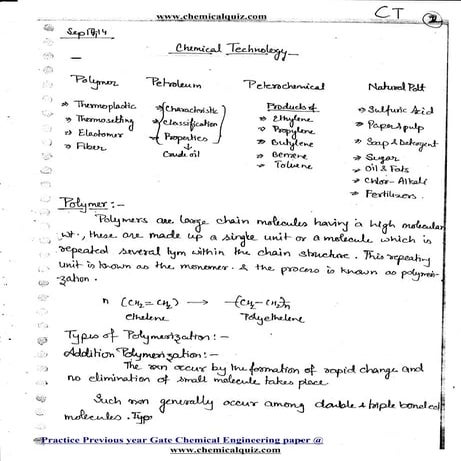 www.chemicalquiz.com
CT
Chemical Technology
Polymer Petroleum Petrochemical Natural Pdt
→ Thermoplastic → Characteristic Products of → Sulfuric Acid
→ Thermosetting → Classification → Ethylene → Paper & pulp
→ Elastomer → Properties → Propylene → Soap & Detergent
→ Fiber ↓ → Butylene → Sugar
Crude oil → Benzene → Oil & Fats
→ Toluene → Chlor-Alkali
→ Fertilizers.
Polymer:-
Polymers are large chain molecules having a high molecular
wt., these are made up a single unit or a molecule which is
repeated several tym within the chain structure. This repeating
unit is known as the monomer. & the process is known as polymeri-
-zation.
n (CH2=CH2) → -(CH2-CH2)n
ethelene Polyethelene
Types of Polymerization:-
Addition Polymerization:-
The rxn occur by the formation of rapid change and
no elimination of small molecule takes place
Such rxn generally occur among double & triple bonded
molecules. Typ
Practice Previous year Gate Chemical Engineering paper @
www.chemicalquiz.com